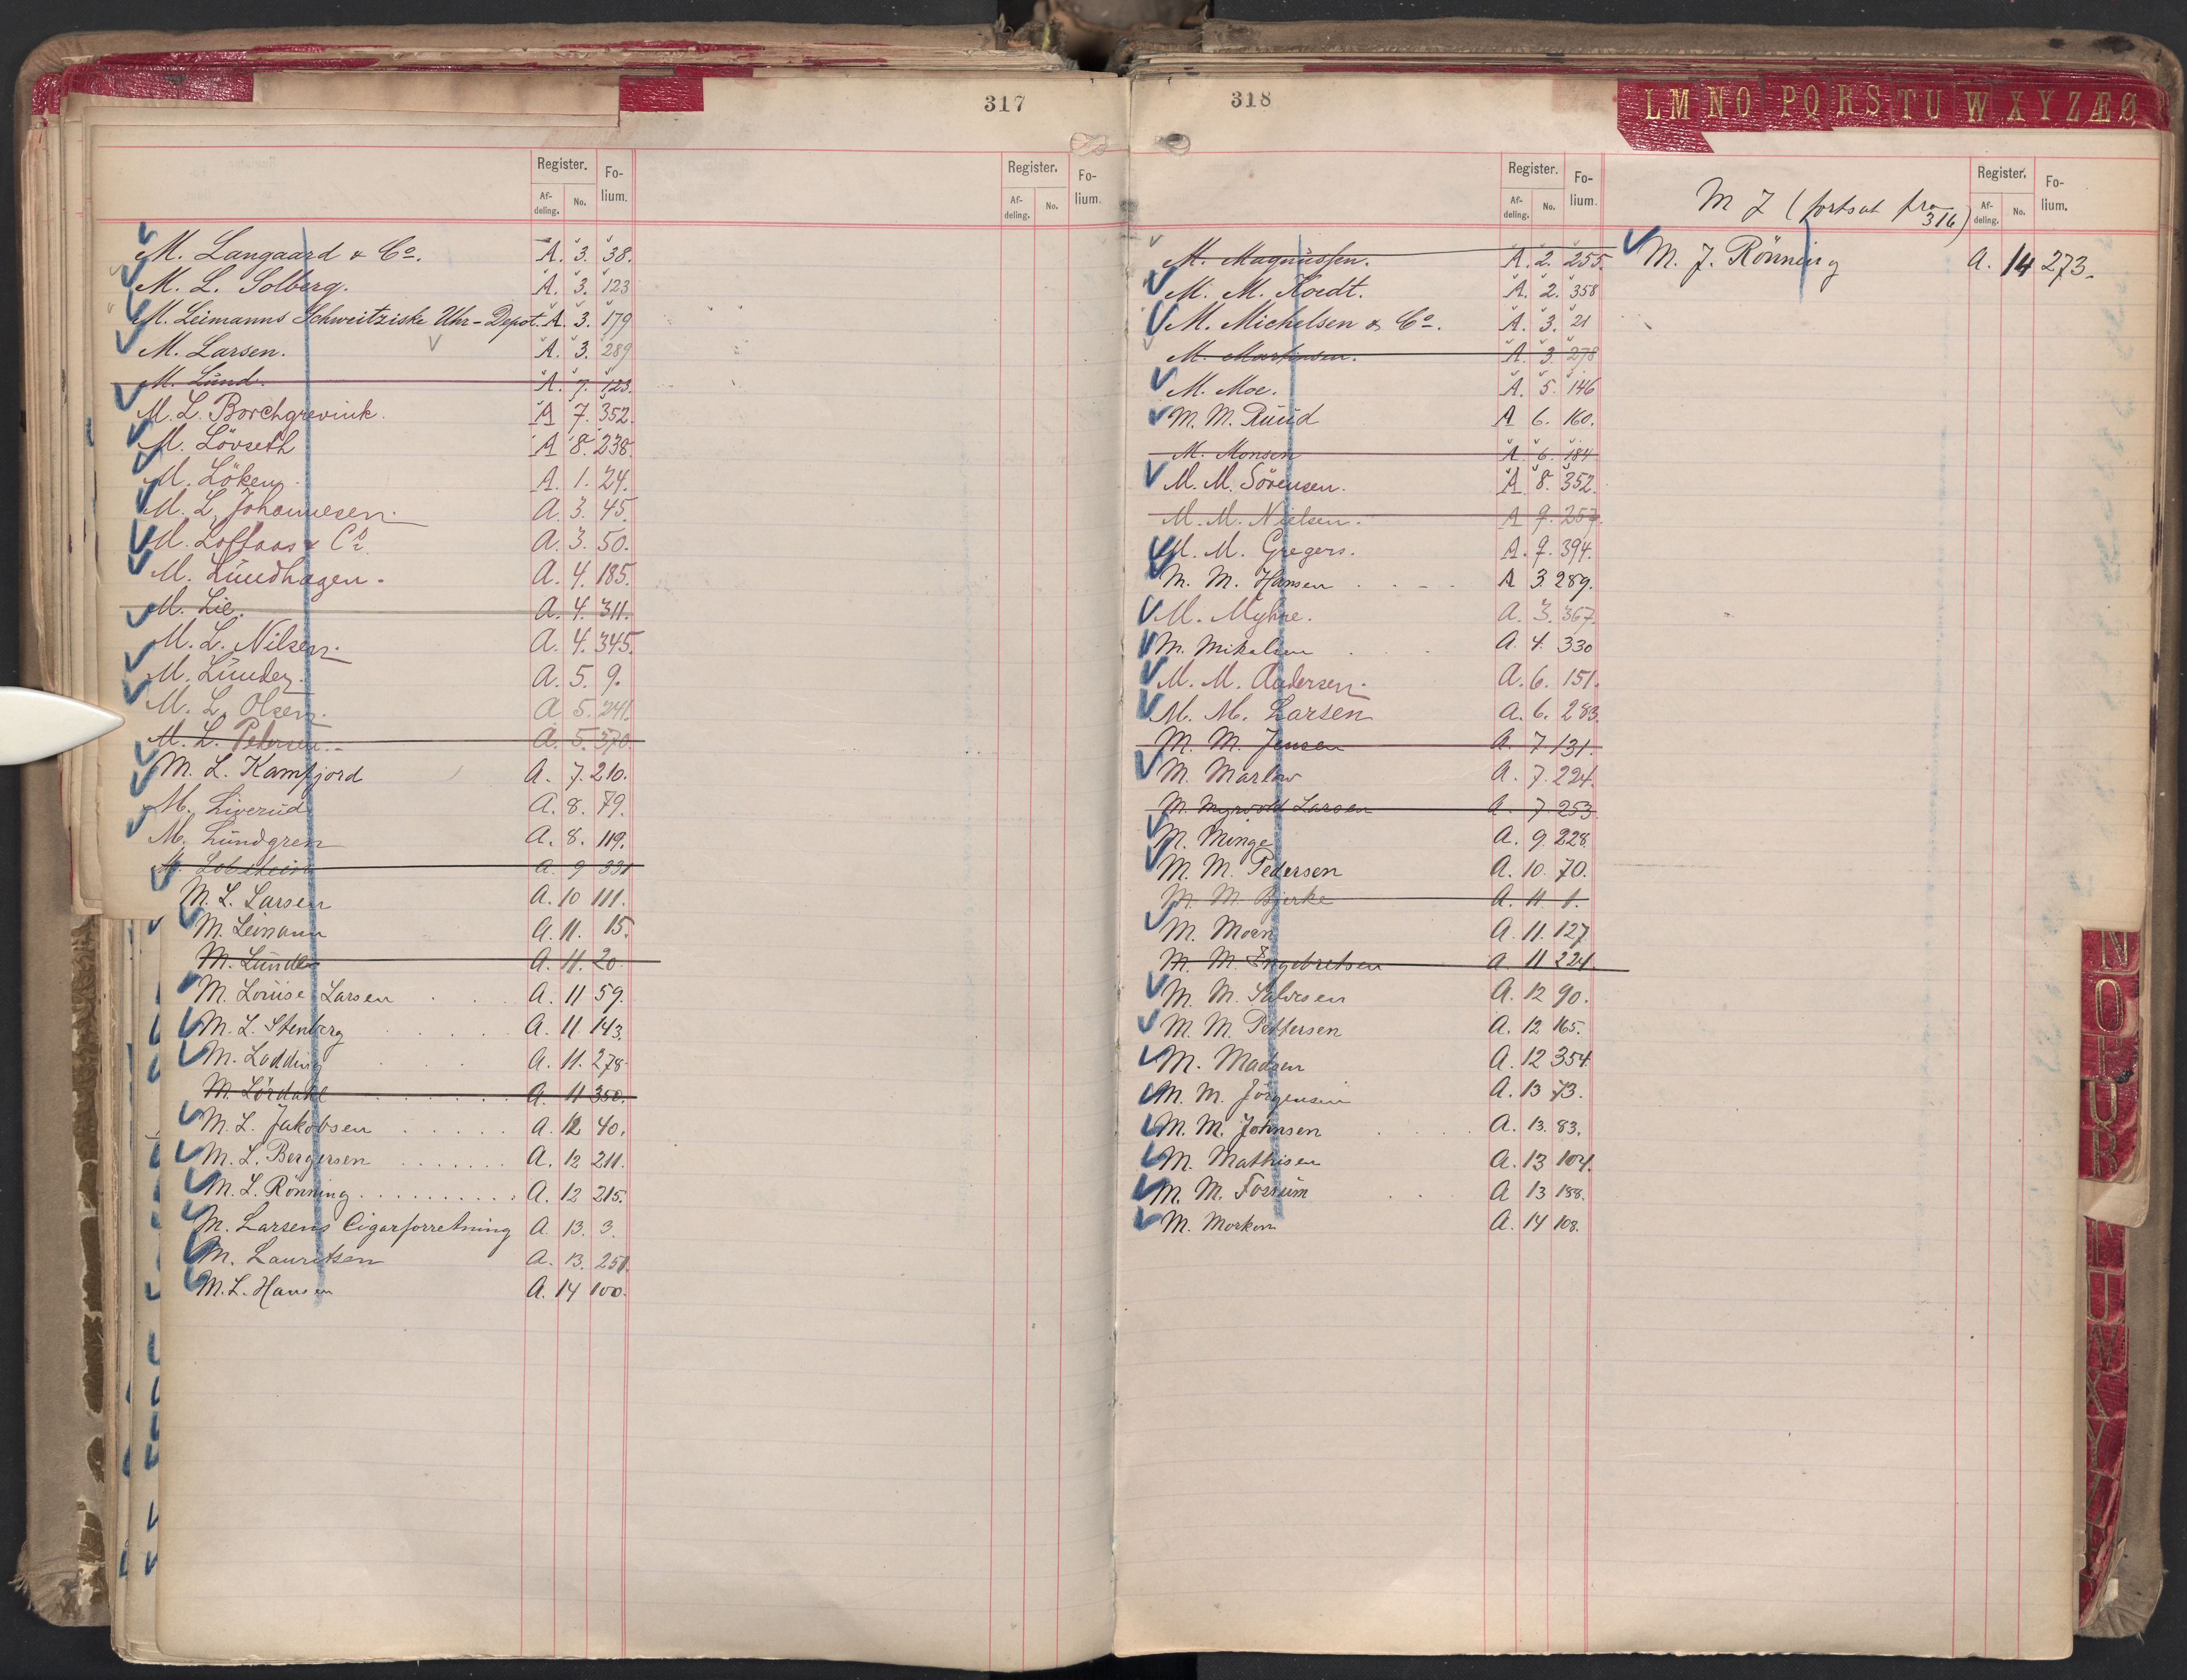 317
Register. Fo-lium.
Af-deling. No.
Register. Fo-lium.
Af-deling. No.
M. Langaard & Co. A. 3. 38.
M. L. Solberg. A. 3. 123
M. Leimanns Schweitziske Uhr-Depot. A. 3. 179
M. Larsen. A. 3. 289
M. Lund. A. 7. 123.
M. L. Borchgrevink. A 7. 352.
M. Lövseth A 8. 238.
M. Löken. A. 1. 24.
M. L. Johannesen. A. 3. 45.
M. Loffaas & Co A. 3. 50.
M. Lundhagen. A. 4. 185.
M. Lie. A. 4. 311.
M. L. Nilsen. A. 4. 345.
M. Lunder. A. 5. 9.
M. L. Olsen. A 5. 241.
M. L. Petersen. A. 5. 370.
M. L. Kamfjord A. 7. 210.
M. Liverud A. 8. 79.
M. Lundgren A. 8. 119.
M. A. 9 331
M. L. Larsen A. 10 111.
M. Leimann A. 11. 15.
M. Lunde A. 11. 20.
M. Louise Larsen A. 11 59.
M. L. Stenberg A. 11. 143.
M. Lodding A. 11. 278
M. Lördahl A. 11 350.
M. L. Jakobsen A. 12 40.
M. L. Bergersen A. 12 211.
M. L. Rönning A. 12 215.
M. Larsens Cigarforretning A. 13. 3.
M. Lauritsen A. 13. 251.
M. L. Hansen A. 14 100.
318
LM NO PQ RS TU W X Y Z Æ Ø
Register. Fo-lium.
Af-deling. No.
M J (fortsat fra 316)
Register. Fo-lium.
Af-deling. No.
M. Magnussen. A. 2. 255.
M. M. Koedt. A. 2. 358
M. Michelsen & Co. A. 3. 21
M. Martinsen. A. 3 278
M. Moe. A. 5. 146
M. M. Ruud A 6. 160.
M. Monsen A. 6. 184
M. M. Sörensen. A 8. 352.
M. M. Nielsen. A 9. 257.
M. M. Gregers. A. 9. 394.
M. M. Hansen A 3. 289.
M. Myhre. A. 3. 367.
M. Mikalsen A. 4. 330
M. M. Andersen. A. 6. 151.
M. M. Larsen A. 6. 283.
M. M. Jensen A. 7. 131.
M. Marlow A. 7. 224.
M. Myrvold Larsen A. 7. 253
M. Minge A. 9. 228.
M. M. Pedersen A. 10. 70.
M. M. Bjerke A. 11. 1.
M. Moen A. 11. 127
M. M. Engebretsen A. 11 224.
M. M. Salvesen A. 12 90.
M. M. Pettersen A. 12 165.
M. Madsen A. 12 354.
M. M. Jörgensen A. 13 73.
M. M. Johnsen A. 13. 83.
M. Mathisen A. 13 104.
M. M. Fossum A 13 188.
M. Morken A. 14 108.
M. J. Rönning A. 14 273.